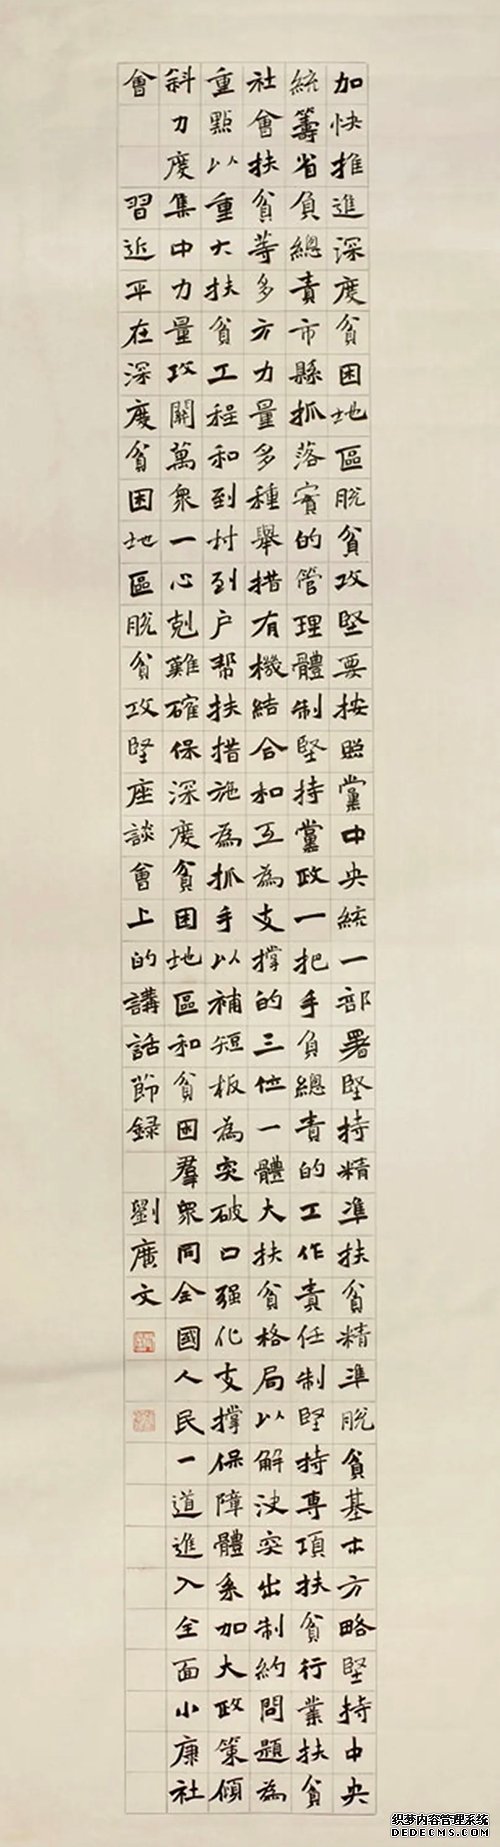 加快推進深度貧困地區脫貧攻堅要按照黨中央統一部署堅持精準扶貧精準脫貧基本方略堅持中央
統籌省負總責市縣抓落實的管理體制堅持黨政一把手負總責的工作責任制堅持專項扶貧行業扶貧
社會扶貧等多方力量多種舉措有機結合和互為支撐的三位一體大扶貧格局以解決突出制約問題為
重點以重大扶貧工程和到村到户帮扶措施為抓手以補短板為突破口强化支撐保障體系加大政策傾
斜力度集中力量攻關萬衆一心剋難確保深度貧困地區和貧困羣衆同全國人民一道進入全面小康社
會 習近平在深度貧困地區脫貧攻堅座談會上的講話節録 劉廣文
织梦内容管理系统
DEDECMS.COM